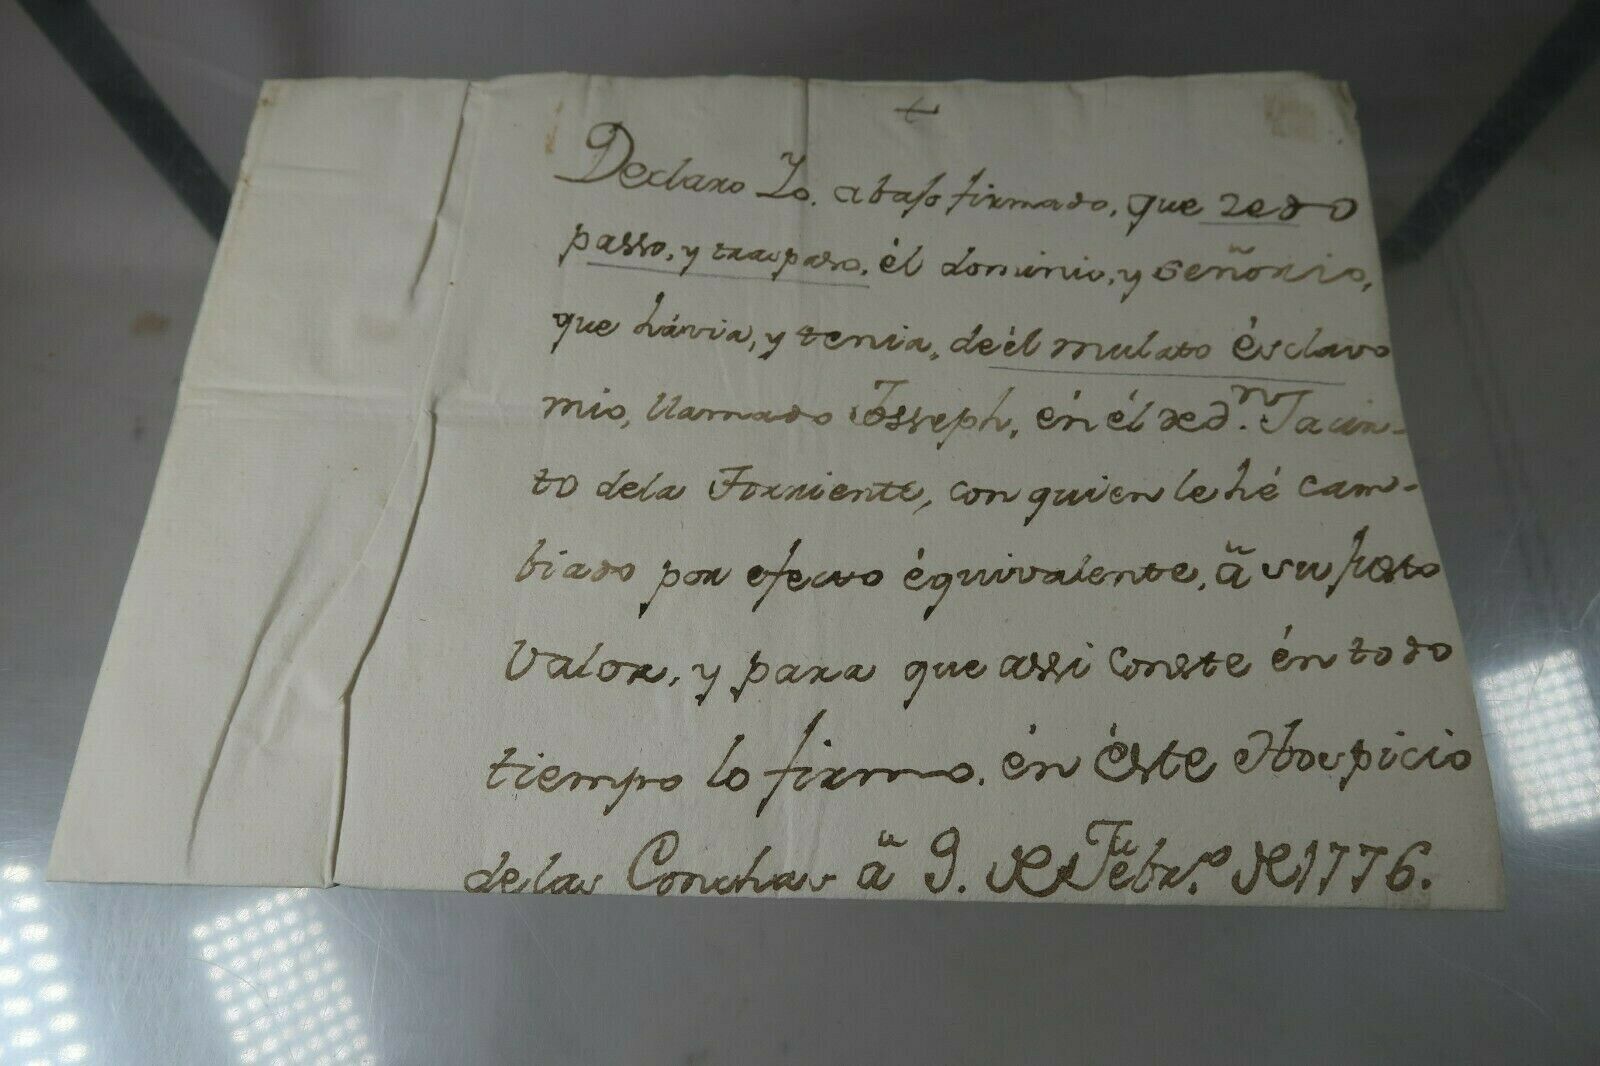 +
Declaro Yo. abaxo firmado, que zedo
passo, y traspaso, él dominio, y señorio,
que hávia, y tenia, de él mulato ésclavo
mio, llamado Josseph, én él de dn. Jacin-
to dela Torriente, con quien le hé cam-
biado por efecto équivalente, â su justo
valor, y para que assi conste én todo
tiempo lo firmo. én éste Hospicio
delas Conchas â 9. de Febro. de 1776.